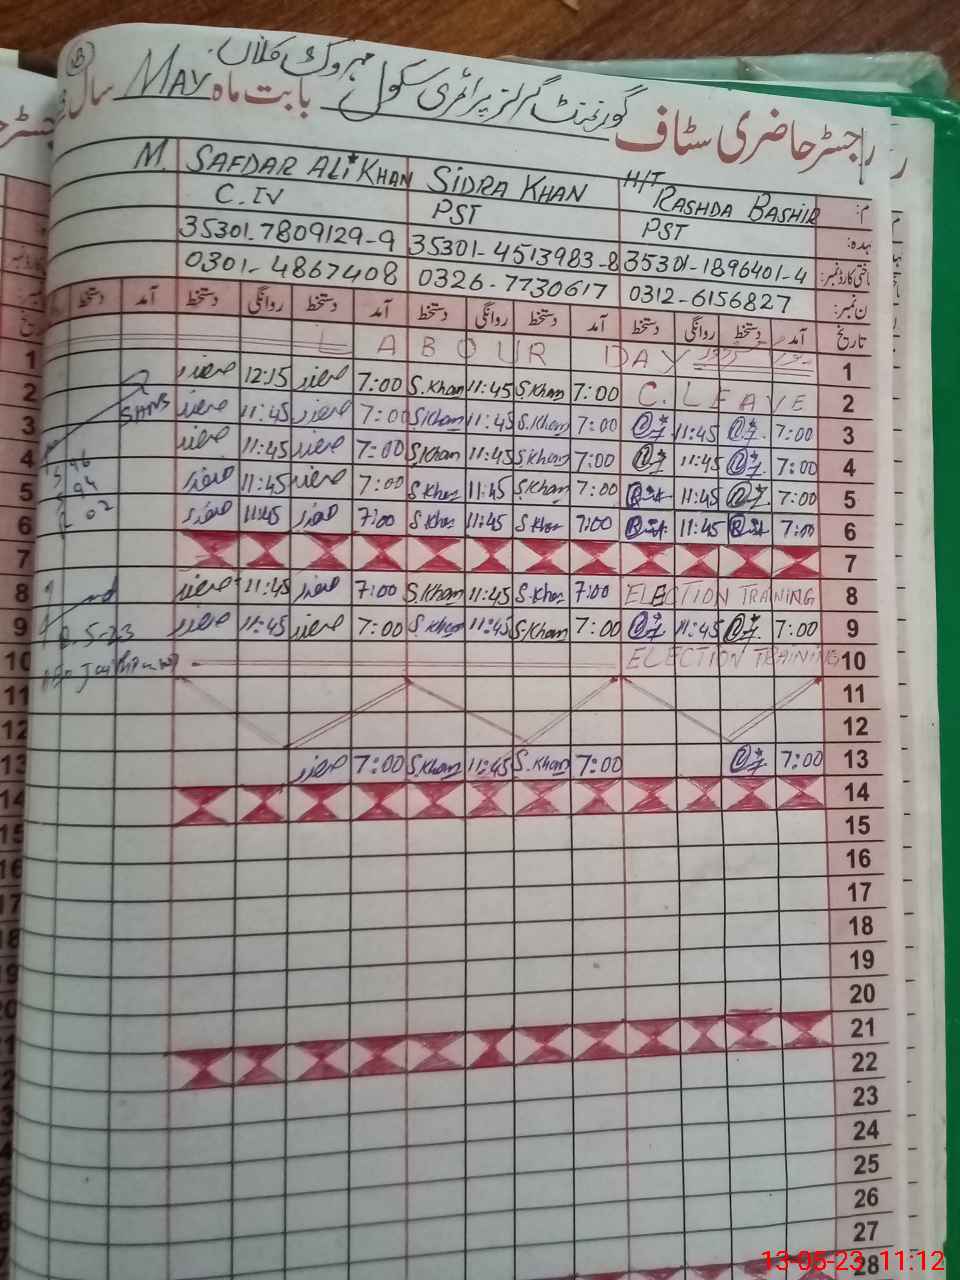 رجسٹر حاضری سٹاف گورنمنٹ گرلز پرائمری سکول مہروک کلاں بابت ماہ MAY سال
M. SAFDAR ALI KHAN SIDRA KHAN H/T RASHDA BASHIR
C.IV PST PST
35301-7809129-9 35301-4513983-8 35301-1896401-4
0301-4867408 0326-7730617 0312-6156827
تاریخ آمد دستخط روانگی دستخط آمد دستخط روانگی دستخط آمد دستخط روانگی دستخط آمد دستخط
1 LABOUR DAY 1
2 صفدر 12:15 صفدر 7:00 S.Khan 11:45 S.Khan 7:00 C.LEAVE 2
3 صفدر 11:45 صفدر 7:00 S.Khan 11:45 S.Khan 7:00 11:45 7:00 3
4 صفدر 11:45 صفدر 7:00 S.Khan 11:45 S.Khan 7:00 11:45 7:00 4
5 صفدر 11:45 صفدر 7:00 S.Khan 11:45 S.Khan 7:00 11:45 7:00 5
6 صفدر 11:45 صفدر 7:00 S.Khan 11:45 S.Khan 7:00 11:45 7:00 6
7 7
8 صفدر 11:45 صفدر 7:00 S.Khan 11:45 S.Khan 7:00 ELECTION TRAINING 8
9 صفدر 11:45 صفدر 7:00 S.Khan 11:45 S.Khan 7:00 11:45 7:00 9
10 ELECTION TRAINING 10
11 11
12 12
13 صفدر 7:00 S.Khan 11:45 S.Khan 7:00 7:00 13
14 14
15 15
16 16
17 17
18 18
19 19
20 20
21 21
22 22
23
24
25
26
27
28
13-05-23 11:12